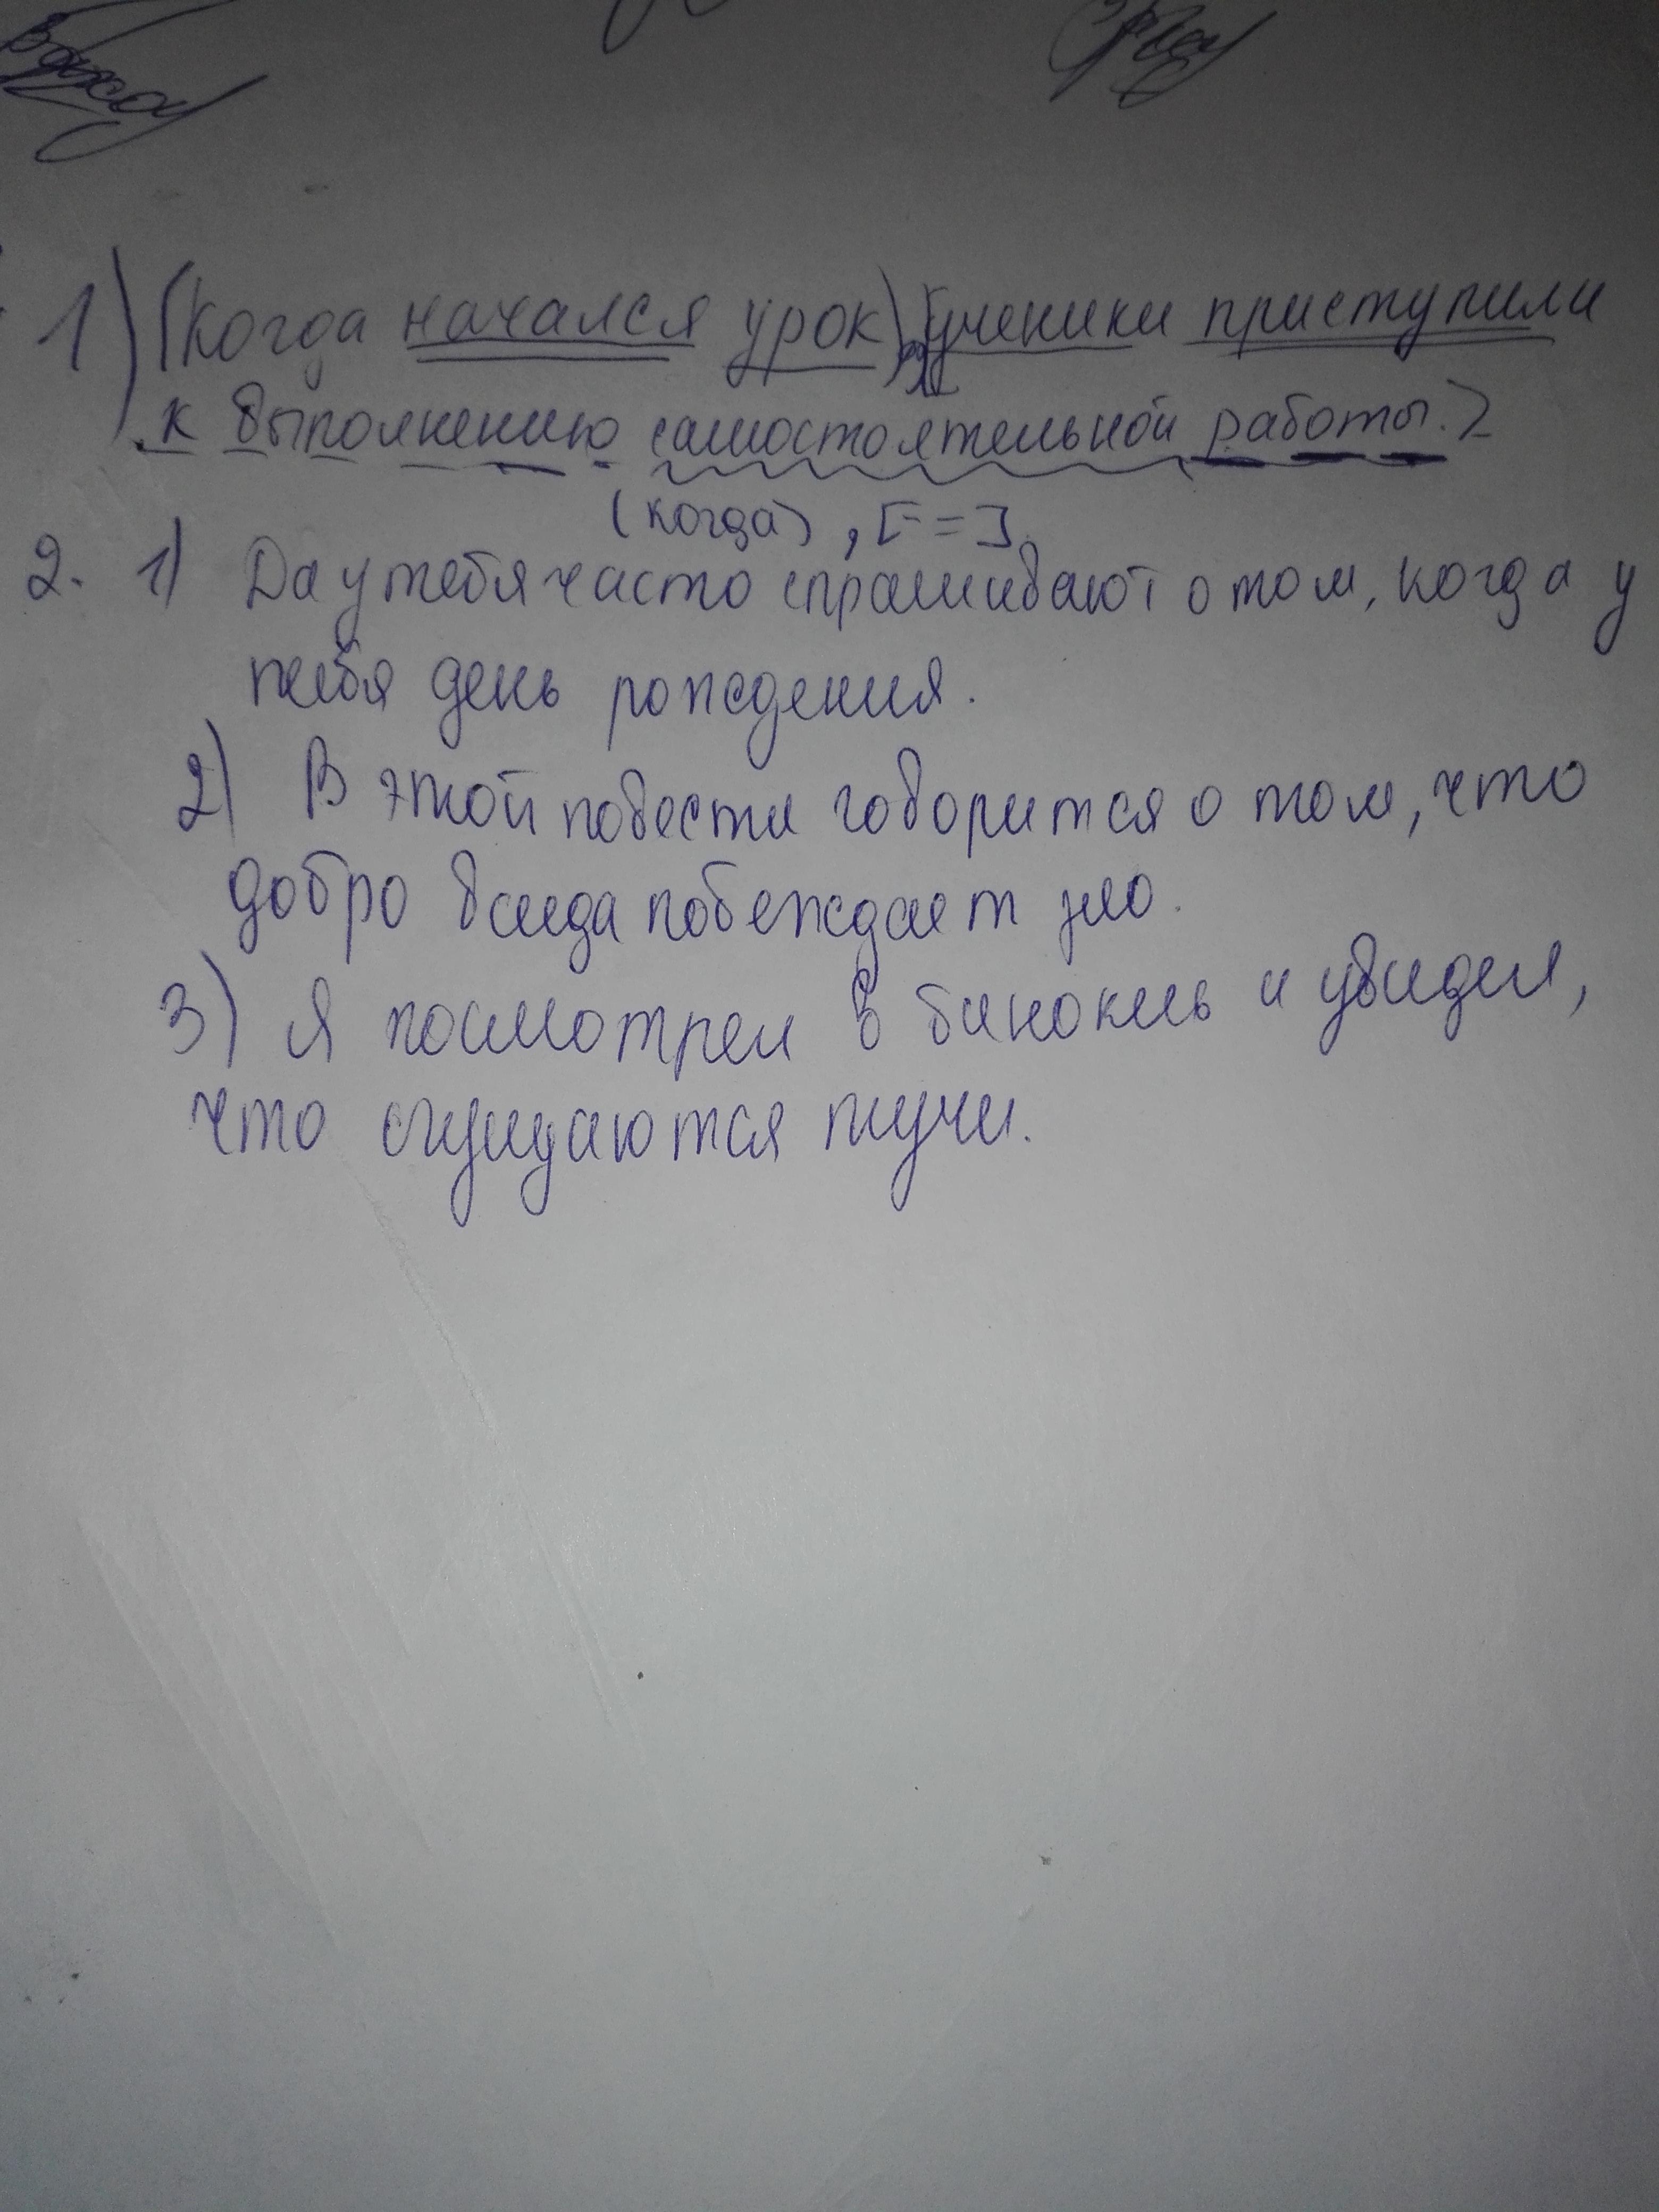 1) (Когда начался урок), [ученики приступили
к выполнению самостоятельной работы.]
(когда), [- =].
2. 1) Да у тебя часто спрашивают о том, когда у
тебя день рождения.
2) В этой повести говорится о том, что
добро всегда побеждает зло.
3) Я посмотрел в бинокль и увидел,
что сгущаются тучи.